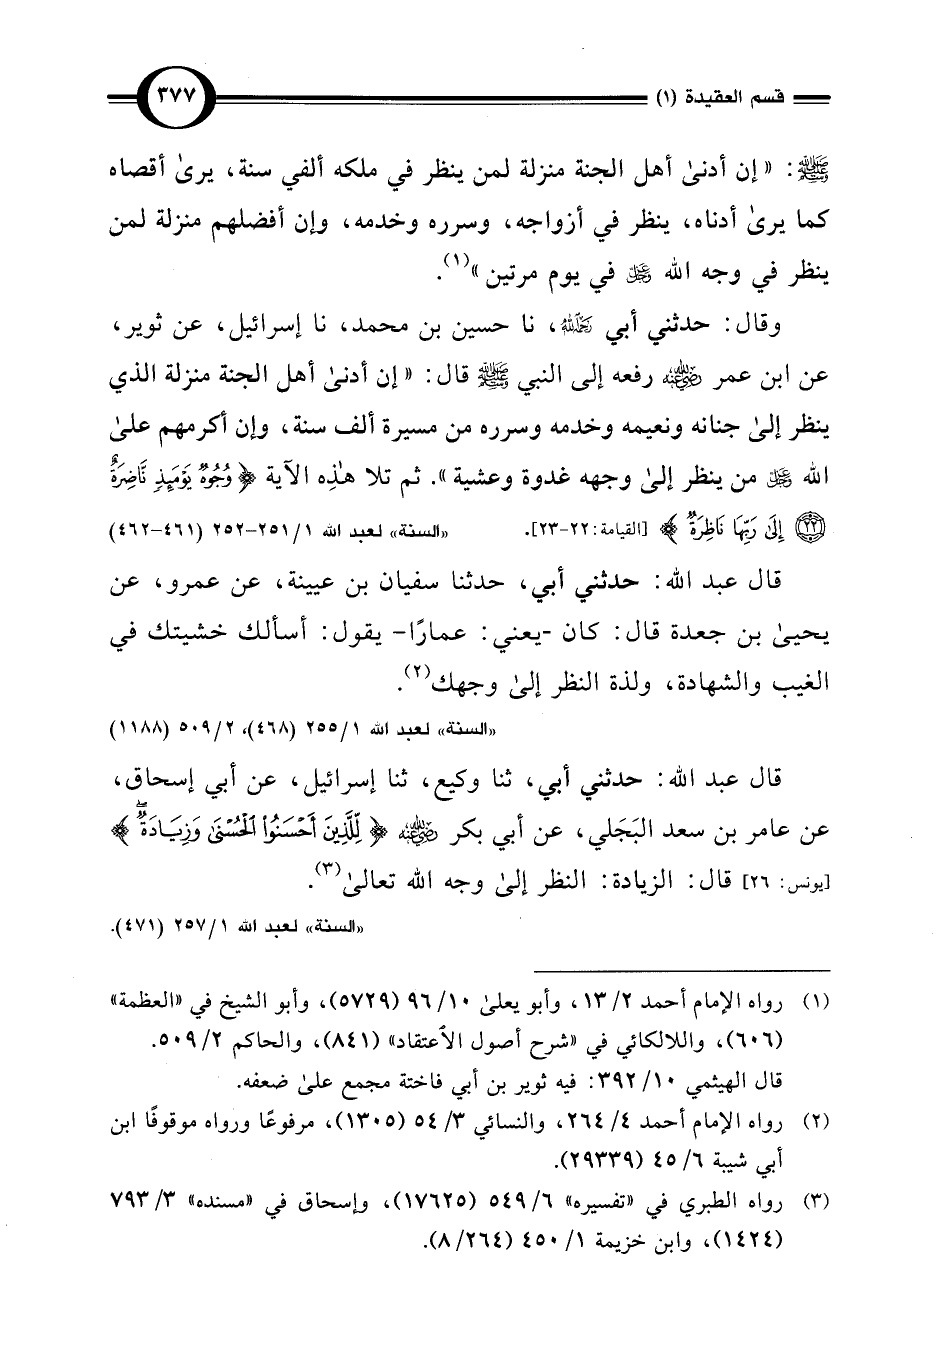 قسم العقيدة (١) ٣٧٧
ﷺ: «إن أدنىٰ أهل الجنة منزلة لمن ينظر في ملكه ألفي سنة، يرىٰ أقصاه
كما يرىٰ أدناه، ينظر في أزواجه، وسرره وخدمه، وإن أفضلهم منزلة لمن
ينظر في وجه الله ﷿ في يوم مرتين»(١).
وقال: حدثني أبي رَحِمَهُ اللهُ، نا حسين بن محمد، نا إسرائيل، عن ثوير،
عن ابن عمر رضي الله عنه رفعه إلى النبي ﷺ قال: «إن أدنىٰ أهل الجنة منزلة الذي
ينظر إلىٰ جنانه ونعيمه وخدمه وسرره من مسيرة ألف سنة، وإن أكرمهم علىٰ
الله ﷿ من ينظر إلىٰ وجهه غدوة وعشية». ثم تلا هٰذِه الآية ﴿وُجُوهٌ يَوْمَئِذٍ نَّاضِرَةٌ
(٢٢) إِلَىٰ رَبِّهَا نَاظِرَةٌ﴾ [القيامة: ٢٢-٢٣]. «السنة» لعبد الله ١/ ٢٥١-٢٥٢ (٤٦١-٤٦٢)
قال عبد الله: حدثني أبي، حدثنا سفيان بن عيينة، عن عمرو، عن
يحيىٰ بن جعدة قال: كان -يعني: عمارًا- يقول: أسألك خشيتك في
الغيب والشهادة، ولذة النظر إلىٰ وجهك(٢).
«السنة» لعبد الله ١/ ٢٥٥ (٤٦٨)، ٢/ ٥٠٩ (١١٨٨)
قال عبد الله: حدثني أبي، ثنا وكيع، ثنا إسرائيل، عن أبي إسحاق،
عن عامر بن سعد البَجَلي، عن أبي بكر رضي الله عنه ﴿لِّلَّذِينَ أَحْسَنُوا۟ الْحُسْنَىٰ وَزِيَادَةٌ﴾
[يونس: ٢٦] قال: الزيادة: النظر إلىٰ وجه الله تعالىٰ(٣).
«السنة» لعبد الله ١/ ٢٥٧ (٤٧١).
(١) رواه الإمام أحمد ٢/ ١٣، وأبو يعلىٰ ١٠/ ٩٦ (٥٧٢٩)، وأبو الشيخ في «العظمة»
(٦٠٦)، واللالكائي في «شرح أصول الأعتقاد» (٨٤١)، والحاكم ٢/ ٥٠٩.
قال الهيثمي ١٠/ ٣٩٢: فيه ثوير بن أبي فاختة مجمع علىٰ ضعفه.
(٢) رواه الإمام أحمد ٤/ ٢٦٤، والنسائي ٣/ ٥٤ (١٣٠٥)، مرفوعًا ورواه موقوفًا ابن
أبي شيبة ٦/ ٤٥ (٢٩٣٣٩).
(٣) رواه الطبري في «تفسيره» ٦/ ٥٤٩ (١٧٦٢٥)، وإسحاق في «مسنده» ٣/ ٧٩٣
(١٤٢٤)، وابن خزيمة ١/ ٤٥٠ (٢٦٤/ ٨).